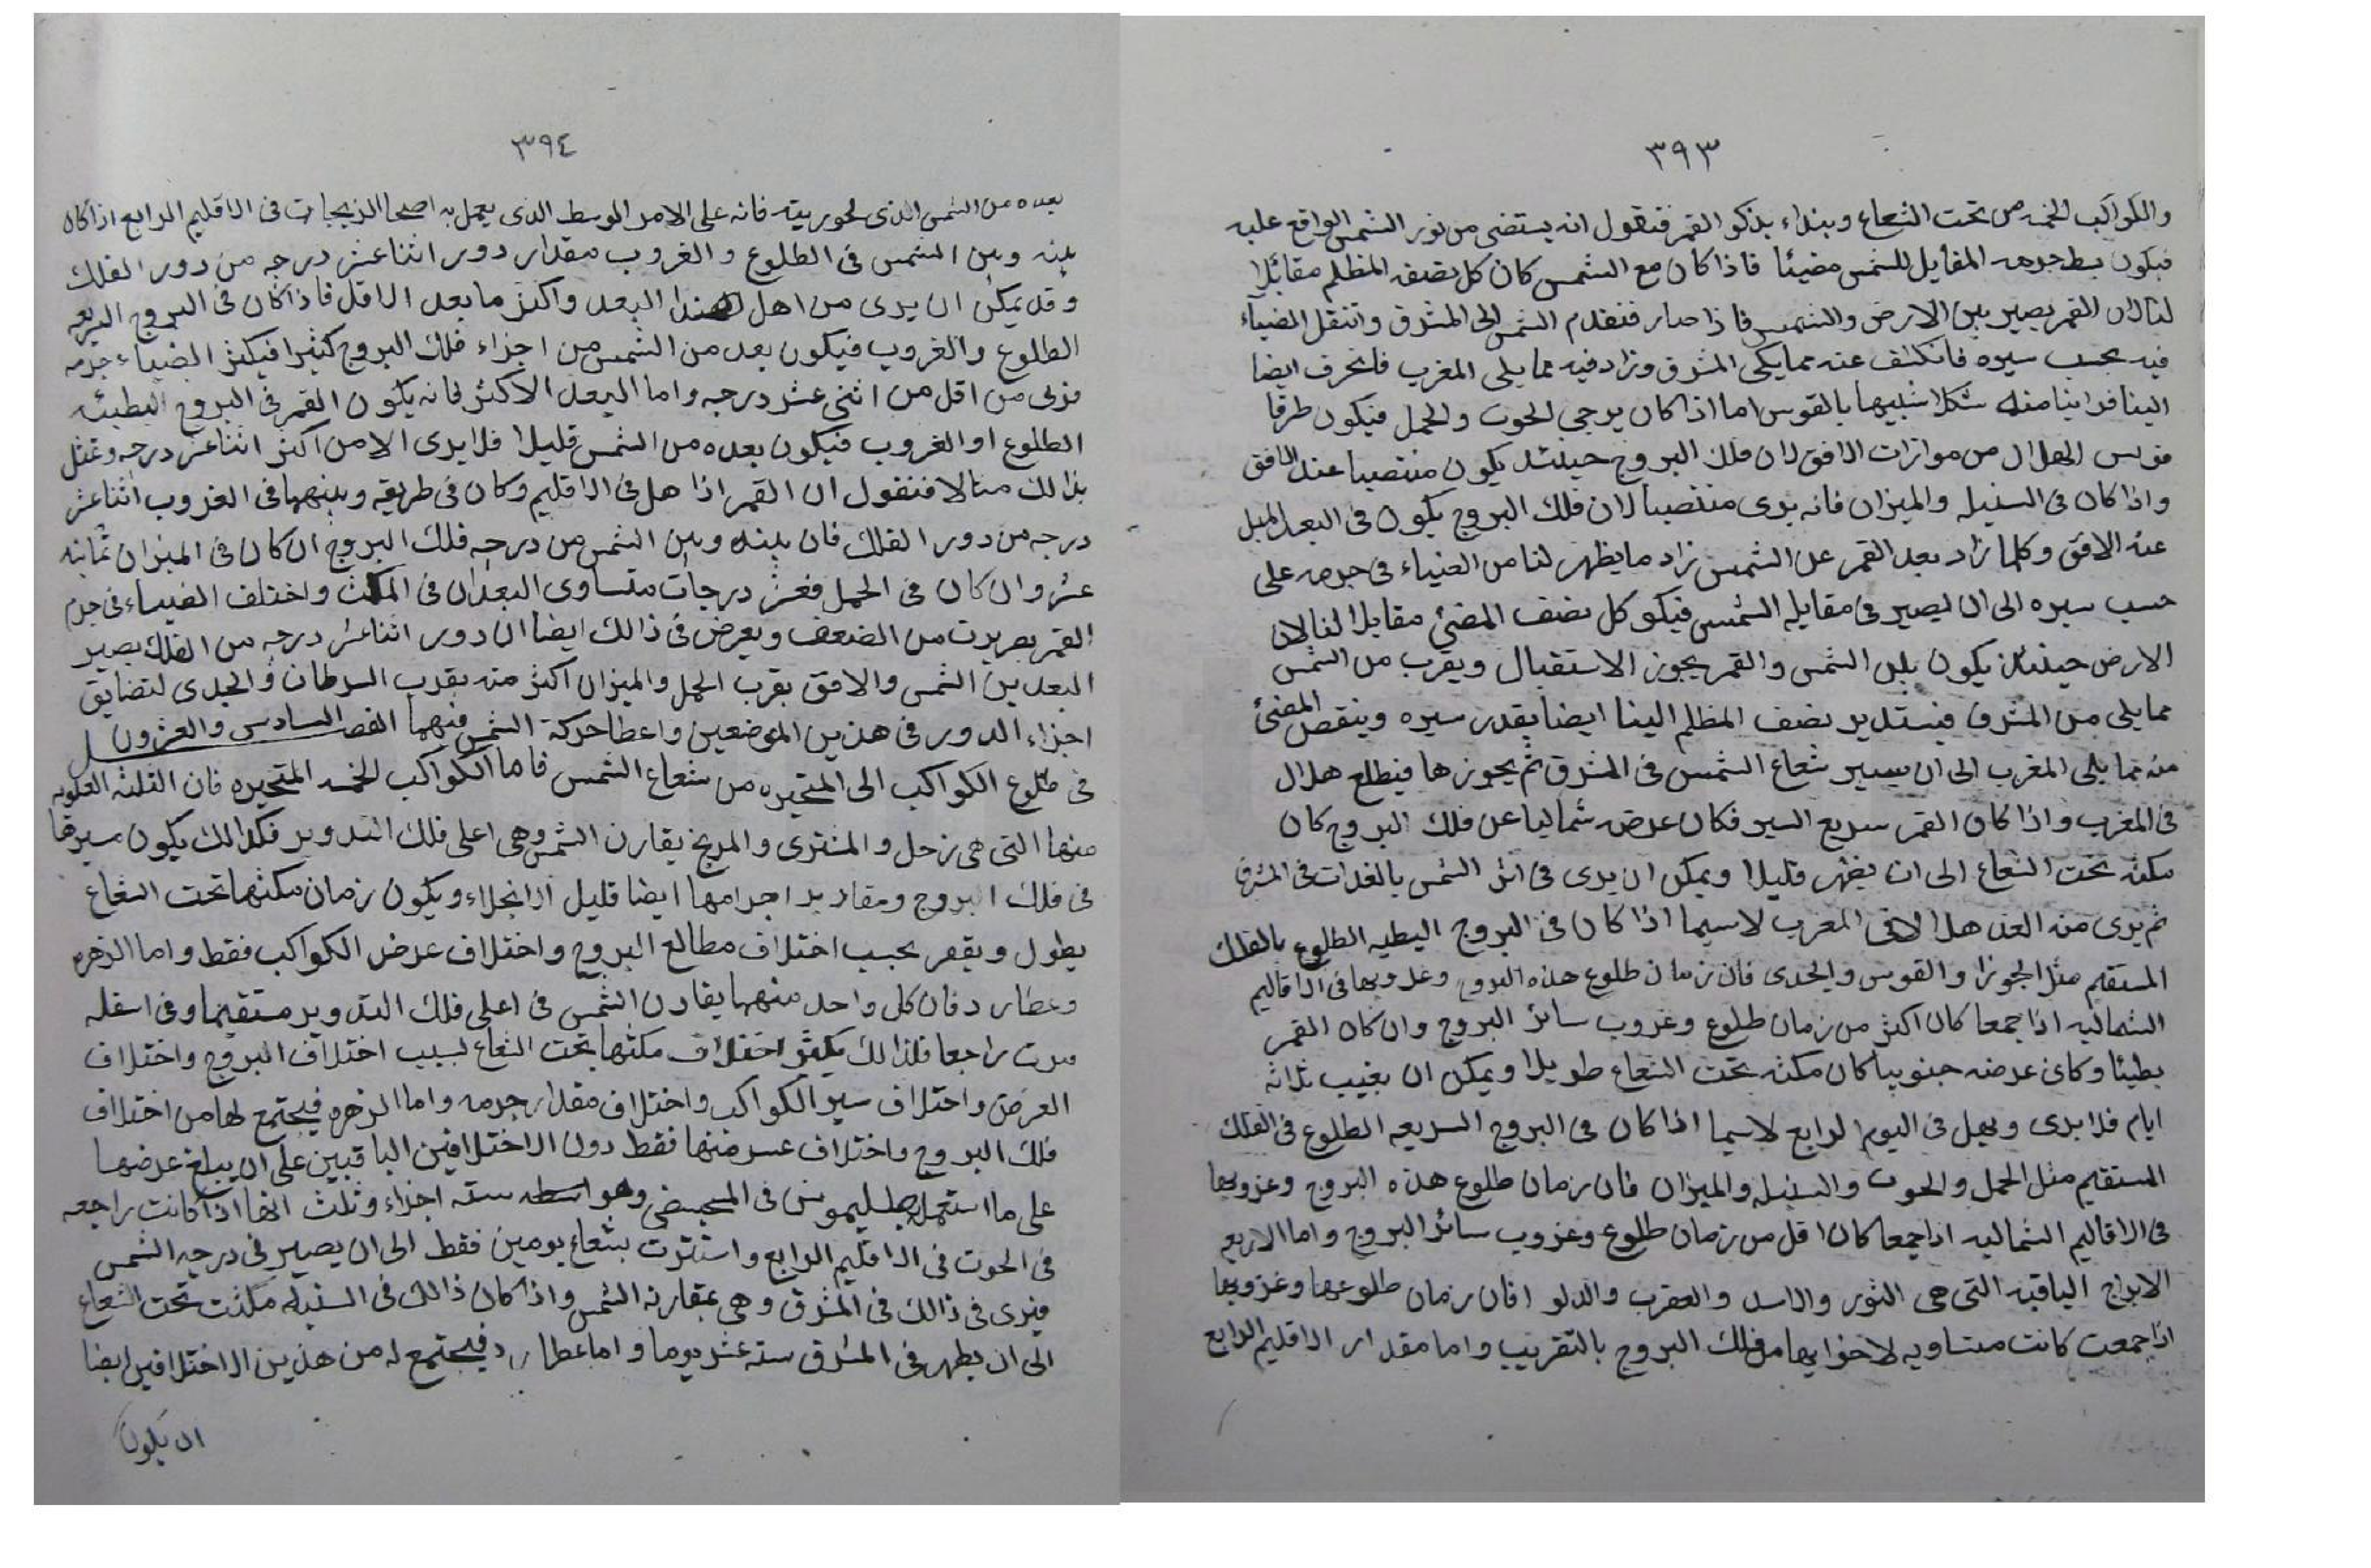 ٣٩٣
والكواكب الخمسه من تحت الشعاع ويبداء بذكر القمر فنقول انه يستضى من نور الشمس الواقع عليه
فيكون بسط جرمه المقابل للشمس مضيئا فاذا كان مع الشمس كان كل نصفه المظلم مقابلا
لنا لان القمر يصير بين الارض والشمس فاذا صار فتقدم الشمس الى المشرق وانتقل الضياء
فيه بحسب سيره فانكشف عنه مما يكى المشرق وزاد فيه مما يلى المغرب فانحرف ايضا
الينا فراينا منه شكلا شبيها بالقوس اما اذا كان برجى الحوت والحمل فيكون طرفا
قوس الهلال من موازات الافق لان فلك البروج حينئذ يكون منتصبا عند الافق
واذا كان فى السنبله والميزان فانه يرى منتصبا لان فلك البروج يكون فى البعد الميل
عنه الافق وكلما زاد بعد القمر عن الشمس زاد ما يظهر لنا من الضياء فى جرمه على
حسب سيره الى ان يصير فى مقابله الشمس فيكو كل نصف المضئ مقابلا لنا لان
الارض حينئذ يكون بين الشمس والقمر يجوز الاستقبال ويقرب من الشمس
مما يلى من المشرق فيستدير نصف المظلم الينا ايضا بقدر سيره وينقص المضئ
منه مما يلى المغرب الى ان يسير شعاع الشمس فى المشرق ثم يجوزها فيطلع هلال
فى المغرب واذا كان القمر سريع السير فكان عرضه شماليا عن فلك البروج كان
مكثه تحت الشعاع الى ان يظهر قليلا ويمكن ان يرى فى اثر الشمس بالغدات فى المشرق
ثم يرى منه الغد هلالا فى المغرب لاسيما اذا كان فى البروج البطيه الطلوع بالفلك
المستقيم مثل الجوزا والقوس والجدى فان زمان طلوع هذه البروج وغروبها فى الاقاليم
الشماليه اذا جمعا كان اكثر من زمان طلوع وغروب سائر البروج وان كان القمر
بطيئا وكان عرضه جنوبيا كان مكثه تحت الشعاع طويلا ويمكن ان يغيب ثلاثه
ايام فلا يرى ويهل فى اليوم الرابع لاسيما اذا كان فى البروج السريعه الطلوع فى الفلك
المستقيم مثل الحمل والحوت والسنبله والميزان فان زمان طلوع هذه البروج وغروبها
فى الاقاليم الشماليه اذا جمعا كان اقل من زمان طلوع وغروب سائر البروج واما الاربع
الابراج الباقيه التى هى الثور والاسد والعقرب والدلو فان زمان طلوعها وغروبها
اذا جمعت كانت متساويه لاخوايها من فلك البروج بالتقريب واما مقدار الاقليم الرابع
٣٩٤
بعده من الشمس الذى رؤيته فانه على الامر الوسط الذى يعمل به اصحا الزيجات فى الاقليم الرابع اذا كان
بينه وبين الشمس فى الطلوع والغروب مقدار دور اثنا عشر درجه من دور الفلك
وقد يمكن ان يرى من اهل هذا البعد واكثر ما بعد الاقل فاذا كان فى البروج السريعه
الطلوع والغروب فيكون بعد من الشمس من اجزاء فلك البروج كثيرا فيكثر الضياء جرمه
فرئى من اقل من اثنى عشر درجه واما البعد الاكثر فانه يكون القمر فى البروج البطيئه
الطلوع او الغروب فيكون بعده من الشمس قليلا فلا يرى الا من اكثر اثنا عشر درجه وتمثل
بذالك مثالا فنقول ان القمر اذا هل فى الاقليم وكان فى طريقه وبينهما فى الغروب اثنا عشر
درجه من دور الفلك فان بينه وبين الشمس من درجه فلك البروج ان كان فى الميزان ثمانيه
عشر وان كان فى الحمل فعشر درجات متساوى البعدان فى المكث واختلف الضياء فى جرم
القمر بقريبت من الضعف ويعرض فى ذالك ايضا ان دور اثنا عشر درجه من الفلك يصير
البعد بين الشمس والافق بقرب الحمل والميزان اكثر منه بقرب السرطان والجدى لتضايق
اجزاء الدور فى هذين الموضعين واعطا حركة الشمس فيهما الفصل السادس والعشرون
فى طلوع الكواكب الى المتحيره من شعاع الشمس فاما الكواكب الخمسه المتحيره فان الثلثه العلويه
منها التى هى زحل والمشترى والمريخ يقارن الشمس وهى اعلى فلك التدوير فكذالك يكون سيرها
فى فلك البروج ومقادير اجرامها ايضا قليل الانجلاء ويكون زمان مكثها تحت الشعاع
يطول ويقصر بحسب اختلاف مطالع البروج واختلاف عرض الكواكب فقط واما الزهره
وعطارد فان كل واحد منهما يقارن الشمس فى اعلى فلك التدوير مستقيما وفى اسفله
مرت راجعا فلذالك يكثر اختلاف مكثها تحت الشعاع لسبب اختلاف البروج واختلاف
العرض واختلاف سير الكواكب واختلاف مقدار جرمه واما الزهره فيجتمع لها من اختلاف
فلك البروج واختلاف عرضها فقط دون الاختلافين الباقيين على ان يبلغ عرضها
على ما استعمله بطليموس فى المجسطى وهو اسطه سته اجزاء وثلث انها اذا كانت راجعه
فى الحوت فى الاقليم الرابع واستترت بشعاع يومين فقط الى ان يصير فى درجه الشمس
فيرى فى ذالك فى المشرق وهى بمقارنه الشمس واذا كان ذالك فى السنبله مكثت تحت الشعاع
الى ان يظهر فى المشرق سته عشر يوما واما عطارد فيجتمع له من هذين الاختلافين ايضا
ان يكون